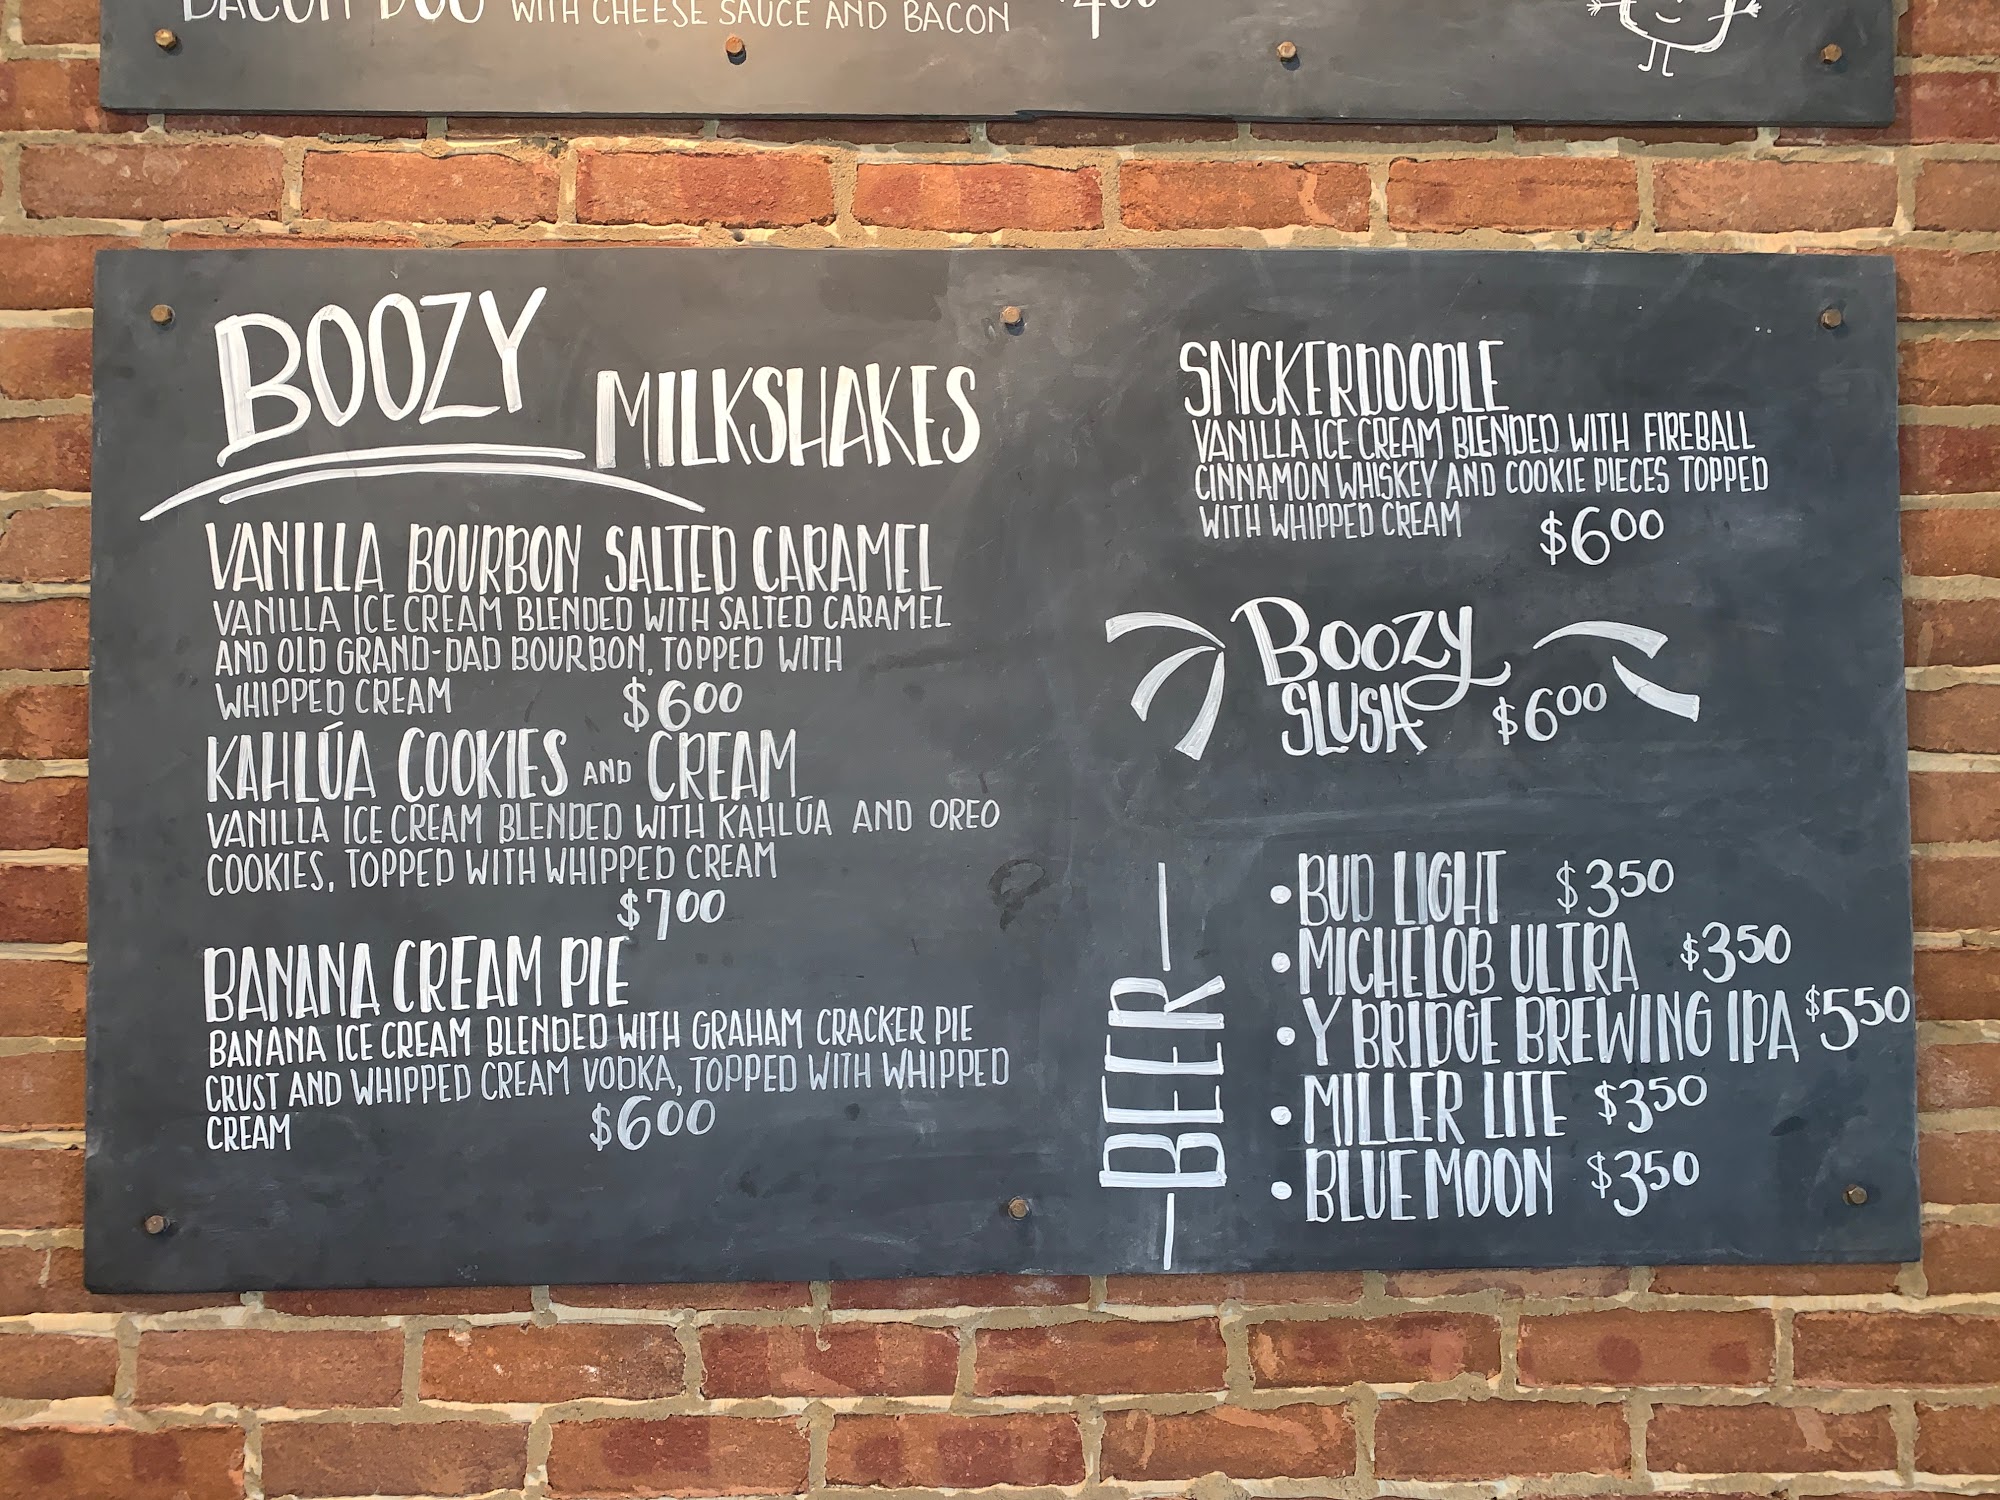 BACON DOG WITH CHEESE SAUCE AND BACON $400
BOOZY MILKSHAKES
VANILLA BOURBON SALTED CARAMEL
VANILLA ICE CREAM BLENDED WITH SALTED CARAMEL
AND OLD GRAND-DAD BOURBON, TOPPED WITH
WHIPPED CREAM $600
KAHLÚA COOKIES AND CREAM
VANILLA ICE CREAM BLENDED WITH KAHLÚA AND OREO
COOKIES, TOPPED WITH WHIPPED CREAM
$700
BANANA CREAM PIE
BANANA ICE CREAM BLENDED WITH GRAHAM CRACKER PIE
CRUST AND WHIPPED CREAM VODKA, TOPPED WITH WHIPPED
CREAM $600
SNICKERDOODLE
VANILLA ICE CREAM BLENDED WITH FIREBALL
CINNAMON WHISKEY AND COOKIE PIECES TOPPED
WITH WHIPPED CREAM $600
BOOZY
SLUSH $600
BEER
• BUD LIGHT $350
• MICHELOB ULTRA $350
• Y BRIDGE BREWING IPA $550
• MILLER LITE $350
• BLUE MOON $350